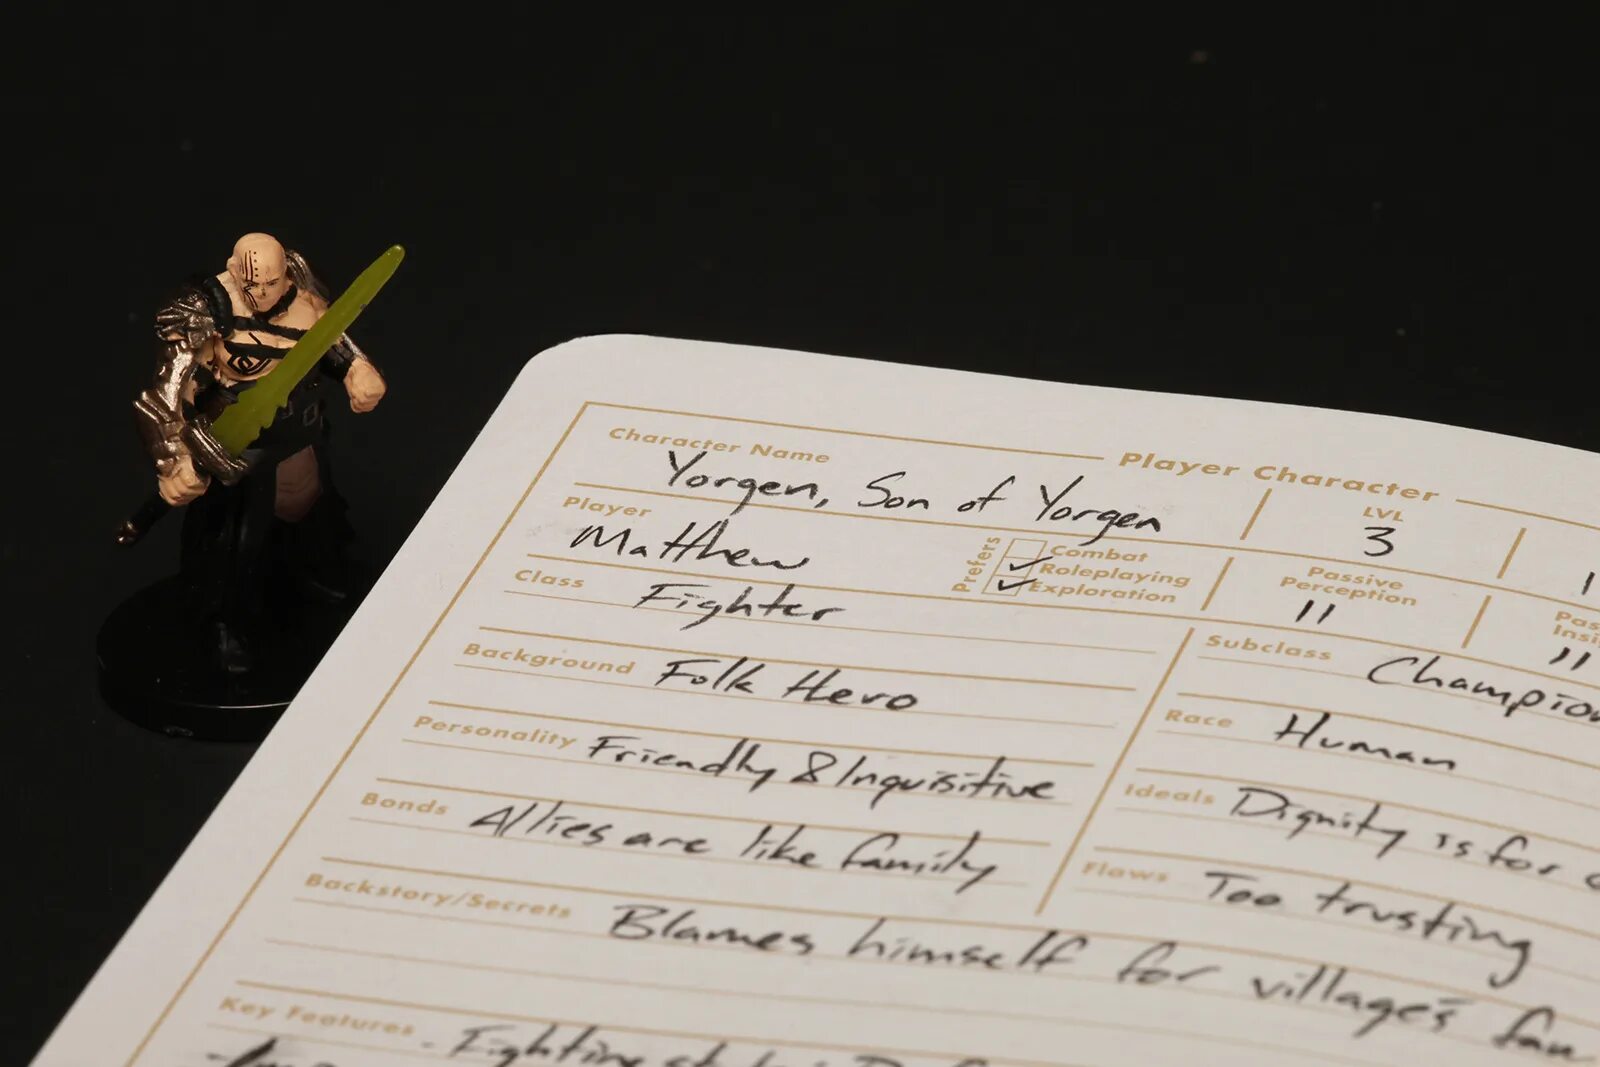 Player Character
Character Name Yorgen, Son of Yorgen
LVL 3
Player Matthew
Prefers Combat
Roleplaying
Exploration
Passive Perception 11
11
Class Fighter
Subclass Champion
Background Folk Hero
Race Human
Personality Friendly & Inquisitive
Ideals Dignity is for
Bonds Allies are like family
Flaws Too trusting
Backstory/Secrets Blames himself for village's
Key Features - Fighting